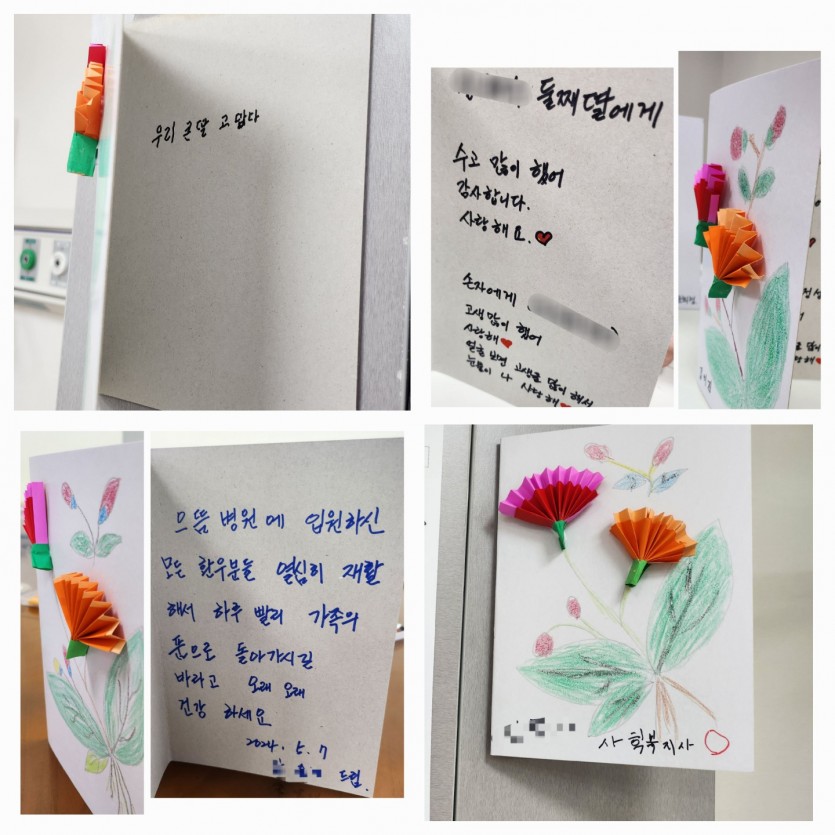 우리 큰딸 고맙다
둘째딸에게
수고 많이 했어
감사합니다.
사랑해요.
손자에게
고생 많이 했어
사랑해
얼굴 보면 고생을 많이 해서
눈물이 나 사랑해
으뜸 병원에 입원하신
모든 환우분들 열심히 재활
해서 하루 빨리 가족의
품으로 돌아가시길
바라고 오래 오래
건강 하세요
2024. 5. 7
드림.
사회복지사